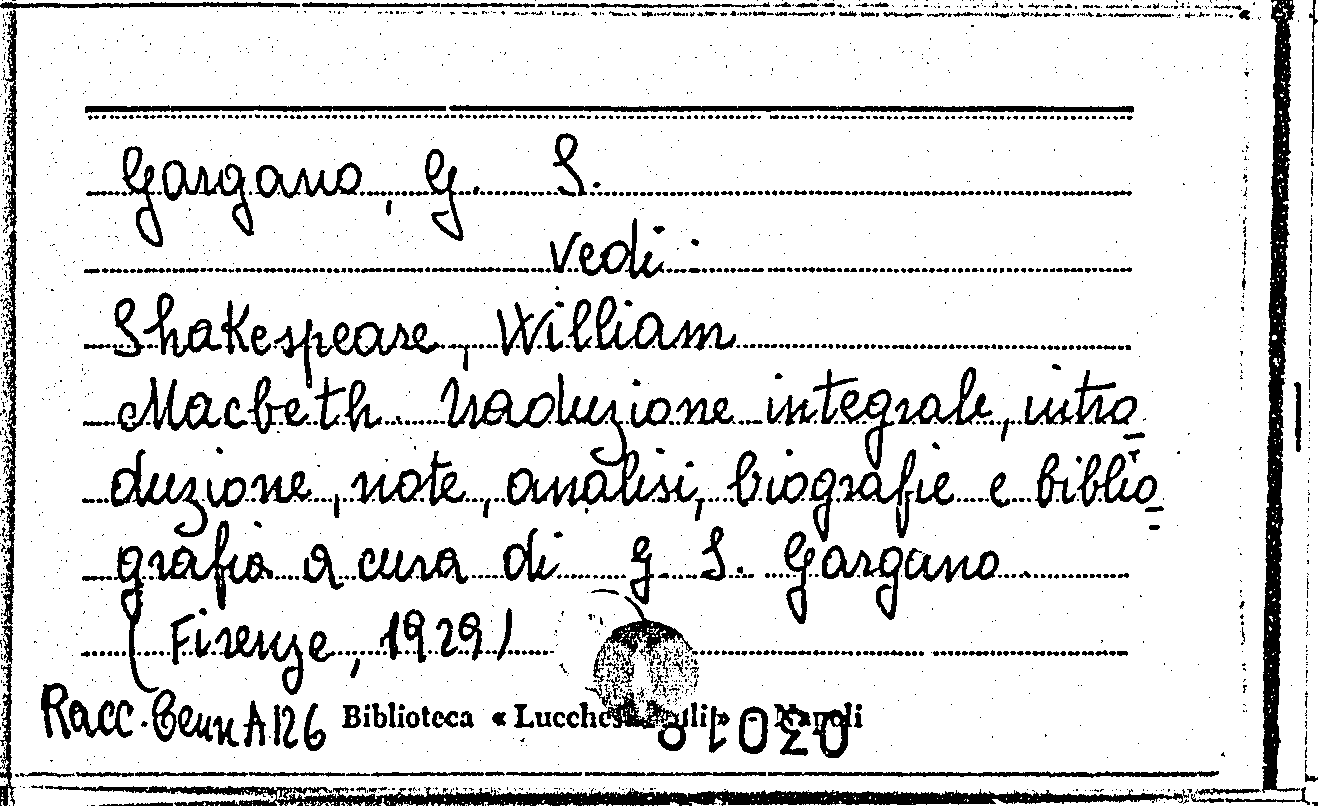 Gargano, G. S.
vedi:
Shakespeare, William
Macbeth. Traduzione integrale, intro=
duzione, note, analisi, biografie e biblio=
grafia a cura di G. S. Gargano.
(Firenze, 1929)
Racc. Cenn A 126 Biblioteca « Lucchesi Palli » - Napoli